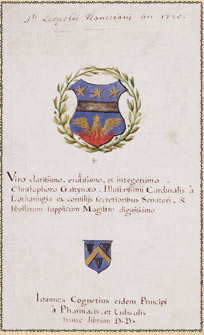 Leopoldi
Viro clarissimo, eruditissimo, et integerrimo
Christophoro Gastynæo, Illustrissimi Cardinalis à
Lotharingia ex consilijs secretioribus Senatori, &
libellorum supplicum Magistro dignissimo
Ioannes Cognetius eidem Principi
à Pharmacis, et Cubiculis
hunc librum D. D.